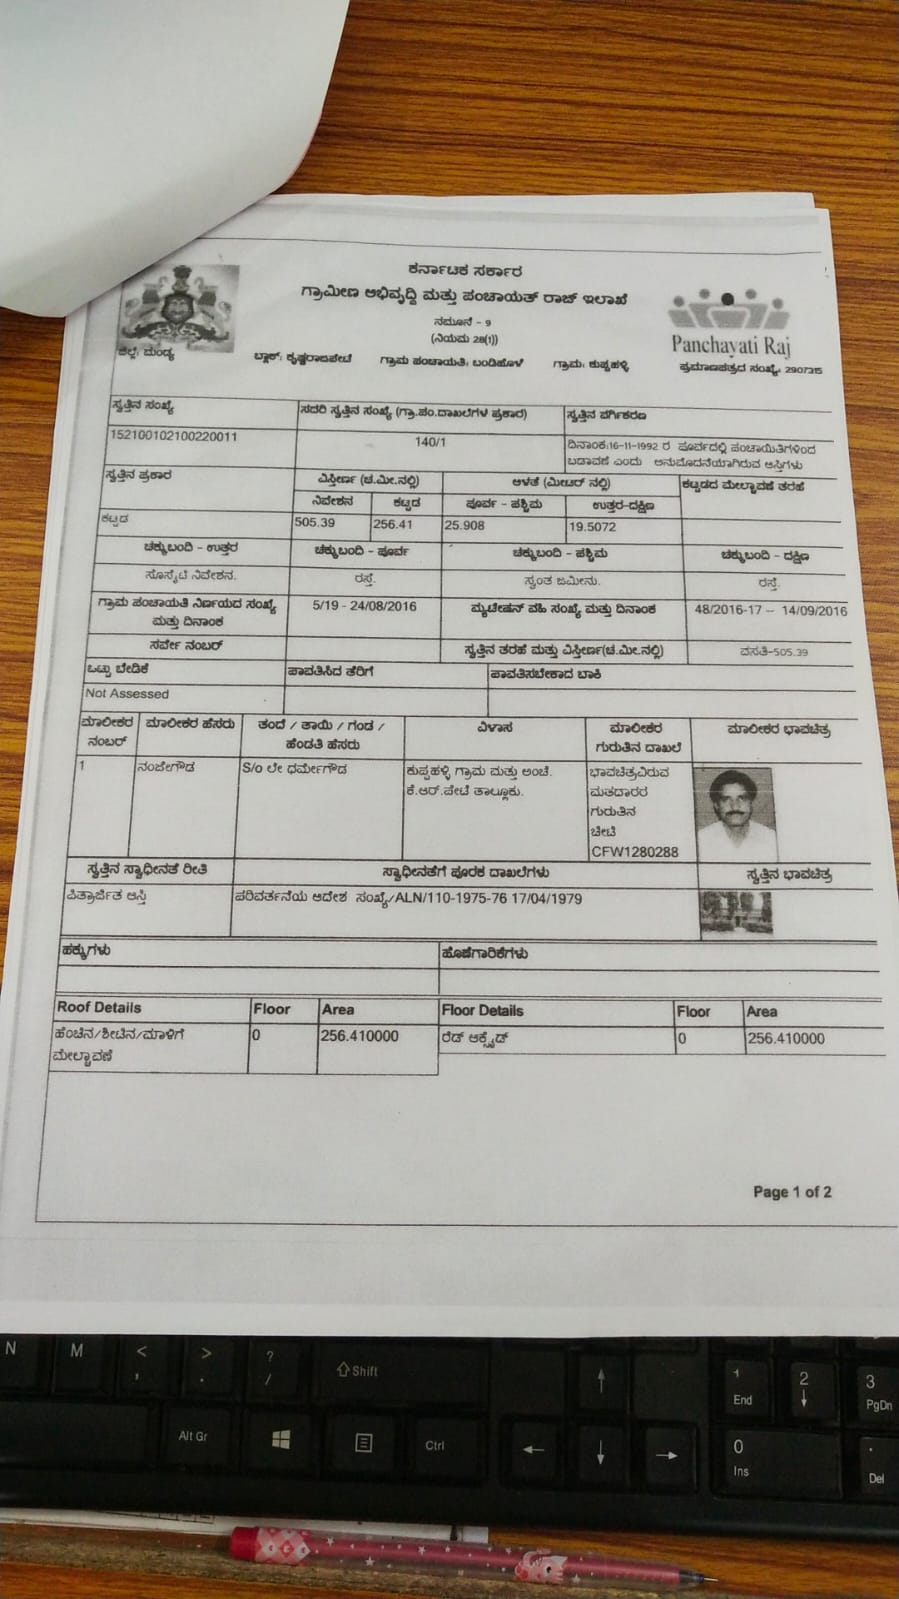 ಕರ್ನಾಟಕ ಸರ್ಕಾರ
ಗ್ರಾಮೀಣ ಅಭಿವೃದ್ಧಿ ಮತ್ತು ಪಂಚಾಯತ್ ರಾಜ್ ಇಲಾಖೆ
ನಮೂನೆ - 9
(ನಿಯಮ 28(1))
Panchayati Raj
ಜಿಲ್ಲೆ: ಮಂಡ್ಯ ಬ್ಲಾಕ್: ಕೃಷ್ಣರಾಜಪೇಟೆ ಗ್ರಾಮ ಪಂಚಾಯತಿ: ಬಂಡಿಹೊಳೆ ಗ್ರಾಮ: ಕುಪ್ಪಹಳ್ಳಿ ಪ್ರಮಾಣಪತ್ರದ ಸಂಖ್ಯೆ: 2907315
ಸ್ವತ್ತಿನ ಸಂಖ್ಯೆ ಸದರಿ ಸ್ವತ್ತಿನ ಸಂಖ್ಯೆ (ಗ್ರಾ.ಪಂ.ದಾಖಲೆಗಳ ಪ್ರಕಾರ) ಸ್ವತ್ತಿನ ವರ್ಗೀಕರಣ
152100102100220011 140/1 ದಿನಾಂಕ:16-11-1992 ರ ಪೂರ್ವದಲ್ಲಿ ಪಂಚಾಯಿತಿಗಳಿಂದ
ಬಡಾವಣೆ ಎಂದು ಅನುಮೋದನೆಯಾಗಿರುವ ಆಸ್ತಿಗಳು
ಸ್ವತ್ತಿನ ಪ್ರಕಾರ ವಿಸ್ತೀರ್ಣ (ಚ.ಮೀ.ನಲ್ಲಿ) ಅಳತೆ (ಮೀಟರ್ ನಲ್ಲಿ) ಕಟ್ಟಡದ ಮೇಲ್ಛಾವಣಿ ತರಹೆ
ನಿವೇಶನ ಕಟ್ಟಡ ಪೂರ್ವ - ಪಶ್ಚಿಮ ಉತ್ತರ-ದಕ್ಷಿಣ
ಕಟ್ಟಡ 505.39 256.41 25.908 19.5072
ಚಕ್ಕುಬಂದಿ - ಉತ್ತರ ಚಕ್ಕುಬಂದಿ - ಪೂರ್ವ ಚಕ್ಕುಬಂದಿ - ಪಶ್ಚಿಮ ಚಕ್ಕುಬಂದಿ - ದಕ್ಷಿಣ
ಸೊಸೈಟಿ ನಿವೇಶನ. ರಸ್ತೆ. ಸ್ವಂತ ಜಮೀನು. ರಸ್ತೆ.
ಗ್ರಾಮ ಪಂಚಾಯತಿ ನಿರ್ಣಯದ ಸಂಖ್ಯೆ 5/19 - 24/08/2016 ಮ್ಯುಟೇಷನ್ ವಹಿ ಸಂಖ್ಯೆ ಮತ್ತು ದಿನಾಂಕ 48/2016-17 -- 14/09/2016
ಮತ್ತು ದಿನಾಂಕ
ಸರ್ವೇ ನಂಬರ್ ಸ್ವತ್ತಿನ ತರಹೆ ಮತ್ತು ವಿಸ್ತೀರ್ಣ(ಚ.ಮೀ.ನಲ್ಲಿ) ವಸತಿ-505.39
ಒಟ್ಟು ಬೇಡಿಕೆ ಪಾವತಿಸಿದ ತೆರಿಗೆ ಪಾವತಿಸಬೇಕಾದ ಬಾಕಿ
Not Assessed
ಮಾಲೀಕರ ಮಾಲೀಕರ ಹೆಸರು ತಂದೆ / ತಾಯಿ / ಗಂಡ / ವಿಳಾಸ ಮಾಲೀಕರ ಮಾಲೀಕರ ಭಾವಚಿತ್ರ
ನಂಬರ್ ಹೆಂಡತಿ ಹೆಸರು ಗುರುತಿನ ದಾಖಲೆ
1 ನಂಜೇಗೌಡ S/o ಲೇ ಧರ್ಮೇಗೌಡ ಕುಪ್ಪಹಳ್ಳಿ ಗ್ರಾಮ ಮತ್ತು ಅಂಚೆ. ಭಾವಚಿತ್ರವಿರುವ
ಕೆ.ಆರ್.ಪೇಟೆ ತಾಲ್ಲೂಕು. ಮತದಾರರ
ಗುರುತಿನ
ಚೀಟಿ
CFW1280288
ಸ್ವತ್ತಿನ ಸ್ವಾಧೀನತೆ ರೀತಿ ಸ್ವಾಧೀನತೆಗೆ ಪೂರಕ ದಾಖಲೆಗಳು ಸ್ವತ್ತಿನ ಭಾವಚಿತ್ರ
ಪಿತ್ರಾರ್ಜಿತ ಆಸ್ತಿ ಪರಿವರ್ತನೆಯ ಆದೇಶ ಸಂಖ್ಯೆ/ALN/110-1975-76 17/04/1979
ಹಕ್ಕುಗಳು ಹೊಣೆಗಾರಿಕೆಗಳು
Roof Details Floor Area Floor Details Floor Area
ಹೆಂಚಿನ/ಶೀಟಿನ/ಮಾಳಿಗೆ 0 256.410000 ರೆಡ್ ಆಕ್ಸೈಡ್ 0 256.410000
ಮೇಲ್ಛಾವಣಿ
Page 1 of 2
N M < > ? Shift 1 2 3
, . / End PgDn
Alt Gr Ctrl 0 .
Ins Del